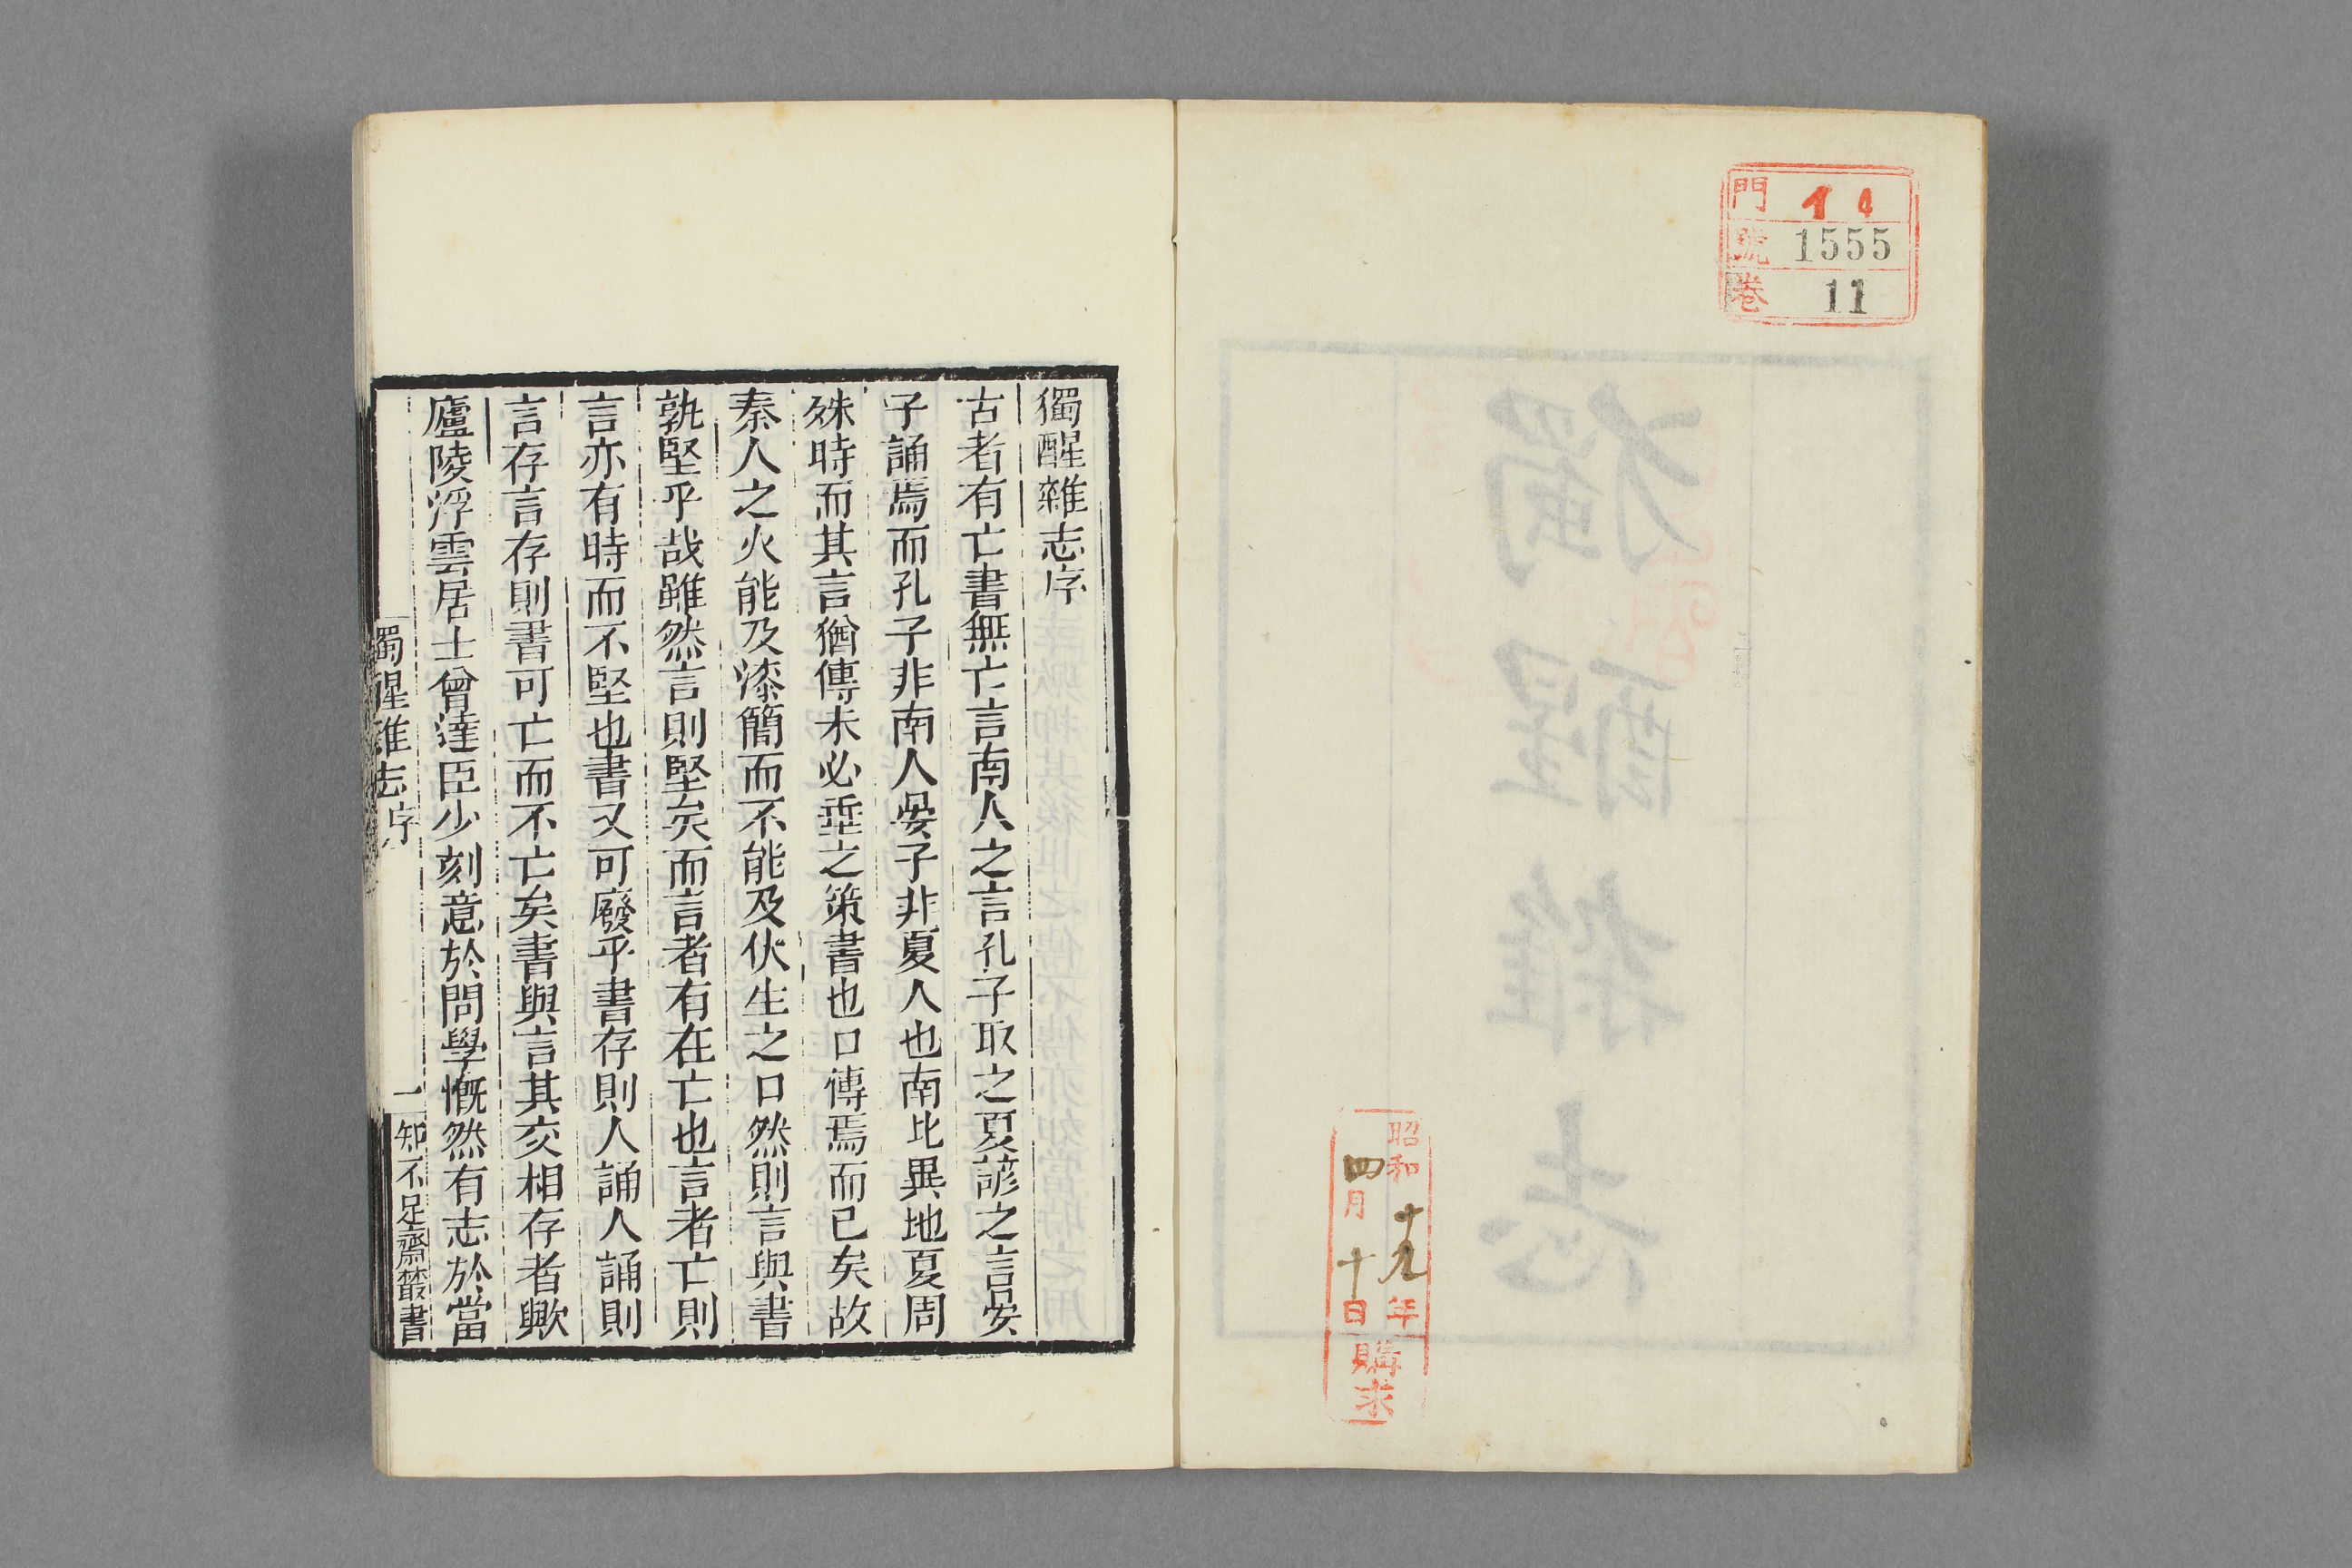 門 14
號 1555
卷 11
昭和十九年
四月十日
購求
獨醒雜志序
古者有亡書無亡言南人之言孔子取之夏諺之言晏
子誦焉而孔子非南人晏子非夏人也南北異地夏周
殊時而其言猶傳未必垂之策書也口傳焉而已矣故
秦人之火能及漆簡而不能及伏生之口然則言與書
孰堅乎哉雖然言則堅矣而言者有在亡也言者亡則
言亦有時而不堅也書又可廢乎書存則人誦人誦則
言存言存則書可亡而不亡矣書與言其交相存者歟
廬陵浮雲居士曾達臣少刻意於問學慨然有志於當
獨醒雜志序
一
知不足齋叢書